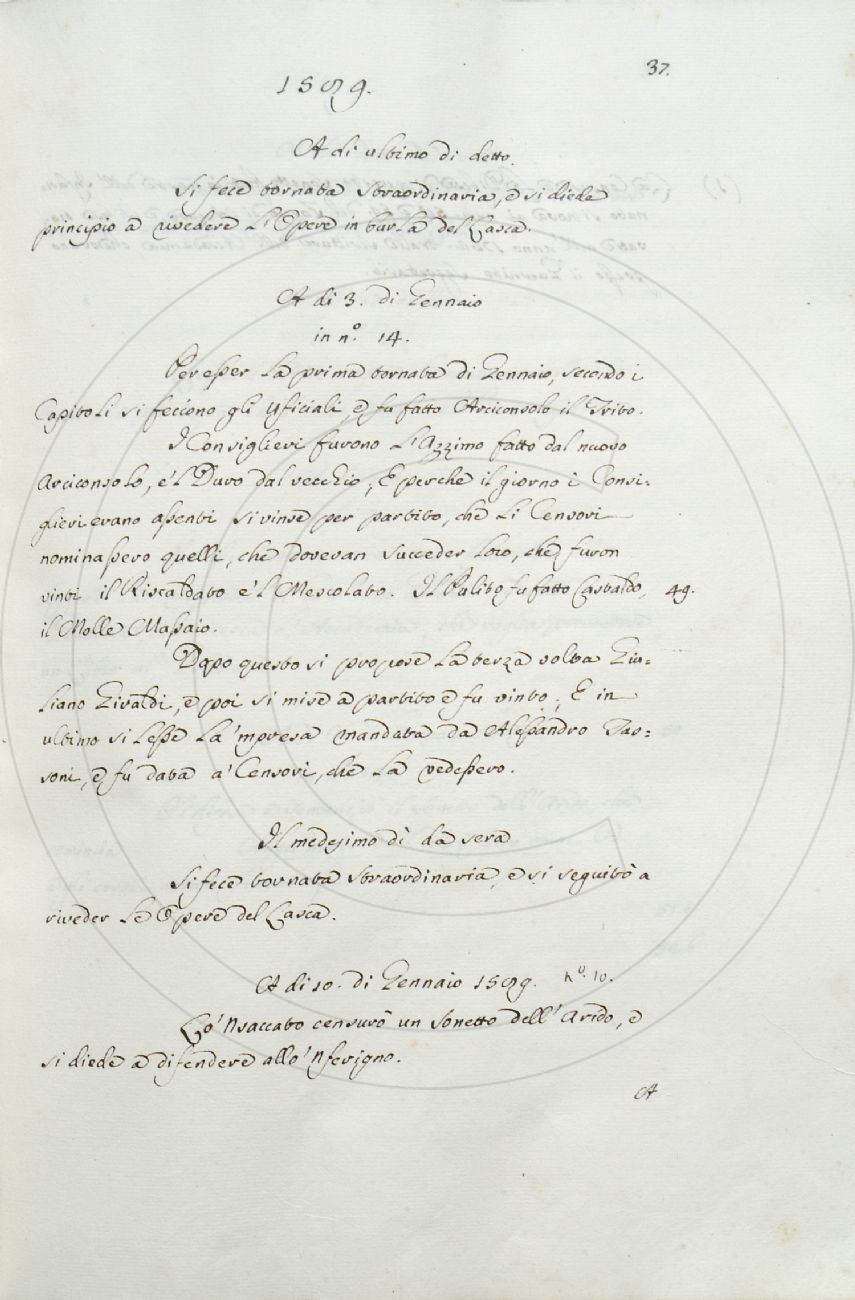 37.
1589.
A di ultimo di detto.
Si fece tornata straordinaria, e si diede
principio a rivedere L'Opere in burla del Lasca.
A di 3. di Gennaio
in n.º 14.
Per esser La prima tornata di Gennaio, secondo i
Capitoli si feciono gli Uficiali, e fu fatto Arciconsolo il Trito.
I Consiglieri furono L'Azzimo fatto dal nuovo
Arciconsolo, e'l Duro dal vecchio; E perche il giorno i Consi=
glieri erano assenti si vinse per partito, che Li Censori
nominassero quelli, che dovevan succeder loro, che furon
vinti il Riscaldato e'l Mescolato. Il Pulito fu fatto Castaldo, 49.
il Molle Massaio.
Dopo questo si propose La terza volta Giu=
liano Giraldi, e poi si mise a partito e fu vinto; E in
ultimo si Lesse La 'mpresa mandata da Alessandro Tas=
soni, e fu data a' Censori, che La vedessero.
Il medesimo dì da sera
Si fece tornata straordinaria, e si seguitò a
riveder Le Opere del Lasca.
A di 10. di Gennaio 1589. nº. 10.
Lo 'Nsaccato censurò un Sonetto dell' Arido, e
si diede a difendere allo 'Nferigno.
A